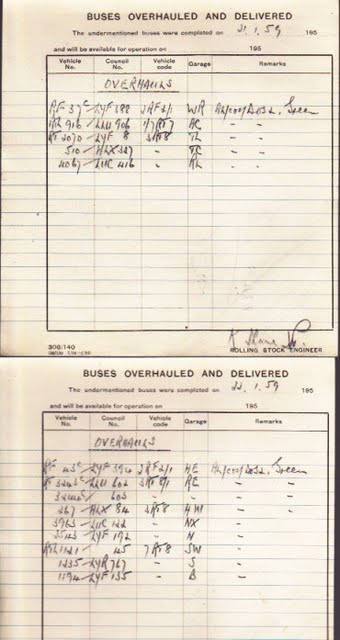 BUSES OVERHAULED AND DELIVERED
The undermentioned buses were completed on 21.1.59 195
and will be available for operation on 195
Vehicle No. Council No. Vehicle code Garage Remarks
OVERHAULS
RF 37 c LYF 388 2RF2/1 WR Green
RTL 916 LUU 906 1/7RT7 AC - -
RT 2070 LYF 8 3RT8 TL - -
510 HLX 327 " TC - -
4067 LUC 416 " RL - -
308/140
ROLLING STOCK ENGINEER
BUSES OVERHAULED AND DELIVERED
The undermentioned buses were completed on 22.1.59 195
and will be available for operation on 195
Vehicle No. Council No. Vehicle code Garage Remarks
OVERHAULS
RF 43 c LYF 394 2RF2/1 HE Green
RT 3243 c LUU 602 RE - -
3244 c 603 " " - -
267 HLX 84 3RT8 HW -
3963 LUC 122 " NX -
3543 LYF 192 " N -
RTL 1121 45 7RT8 SW -
1235 LYR 767 " S -
1194 LYF 135 " B -